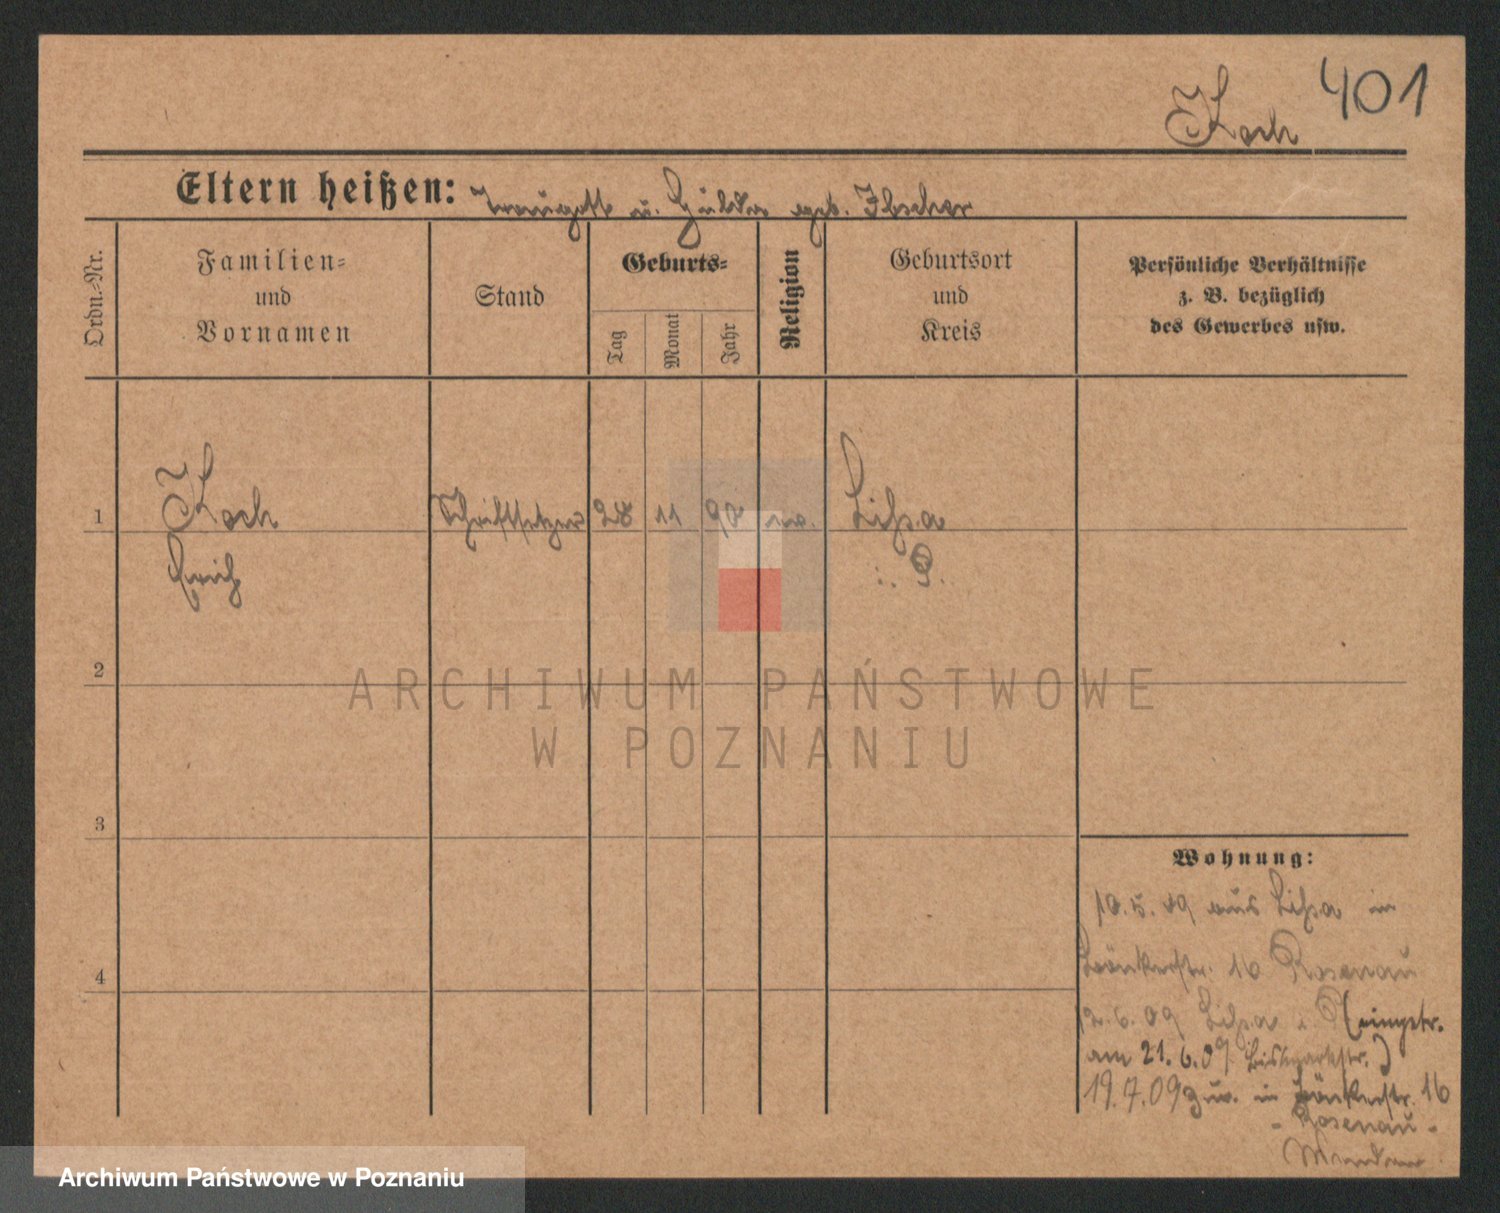 401
Koch
Eltern heißen: Traugott u. Hulda geb. Ibscher
Ordn.-Nr.
Familien-
und
Vornamen
Stand
Geburts-
Tag
Monat
Jahr
Religion
Geburtsort
und
Kreis
Persönliche Verhältnisse
z. B. bezüglich
des Gewerbes usw.
1
Koch
Erich
Schriftsetzer
28
11
90
ev.
Lissa
i. P.
2
3
4
Wohnung:
10.5.09 aus Lissa in
16 Rosenau
12.6.09 Lissa i. P.
am 21.6.09 Bismarckstr.)
19.7.09 zuv. in 16
- Rosenau -
ARCHIWUM PAŃSTWOWE
W POZNANIU
Archiwum Państwowe w Poznaniu